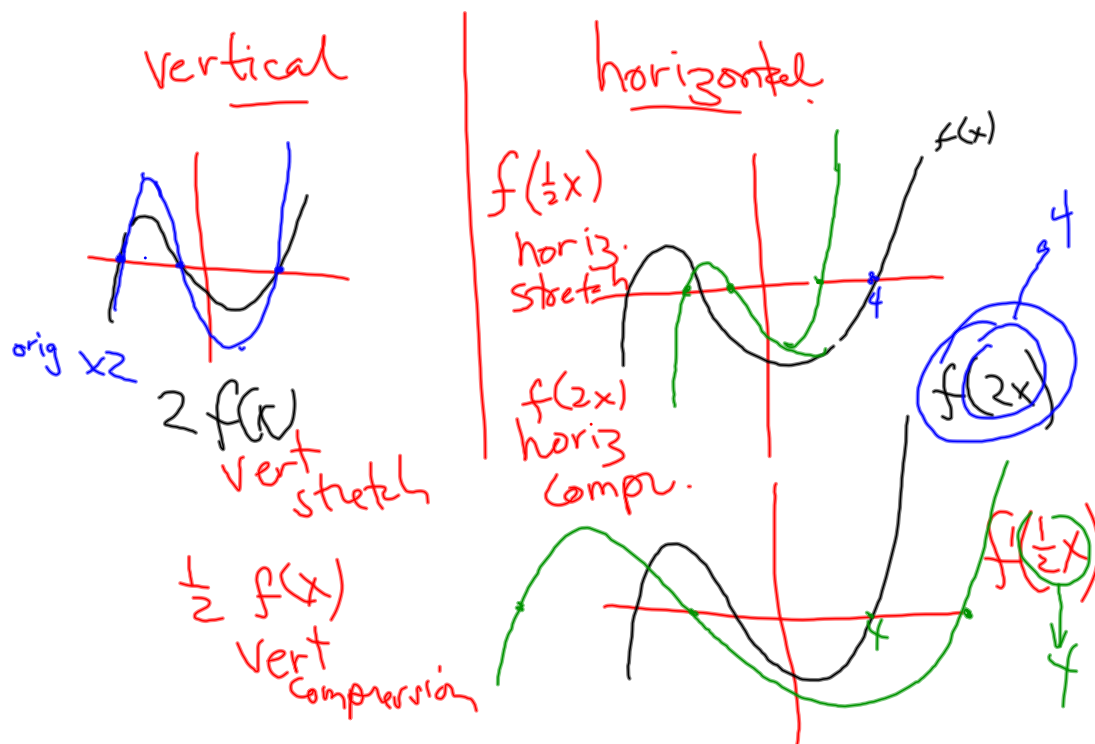 vertical
orig x2
2 f(x)
vert
stretch
1/2 f(x)
vert
compression
horizontal
f(x)
f(1/2x)
horiz.
stretch
4
4
f(2x)
f(2x)
horiz
compr.
f(1/2x)
4
4